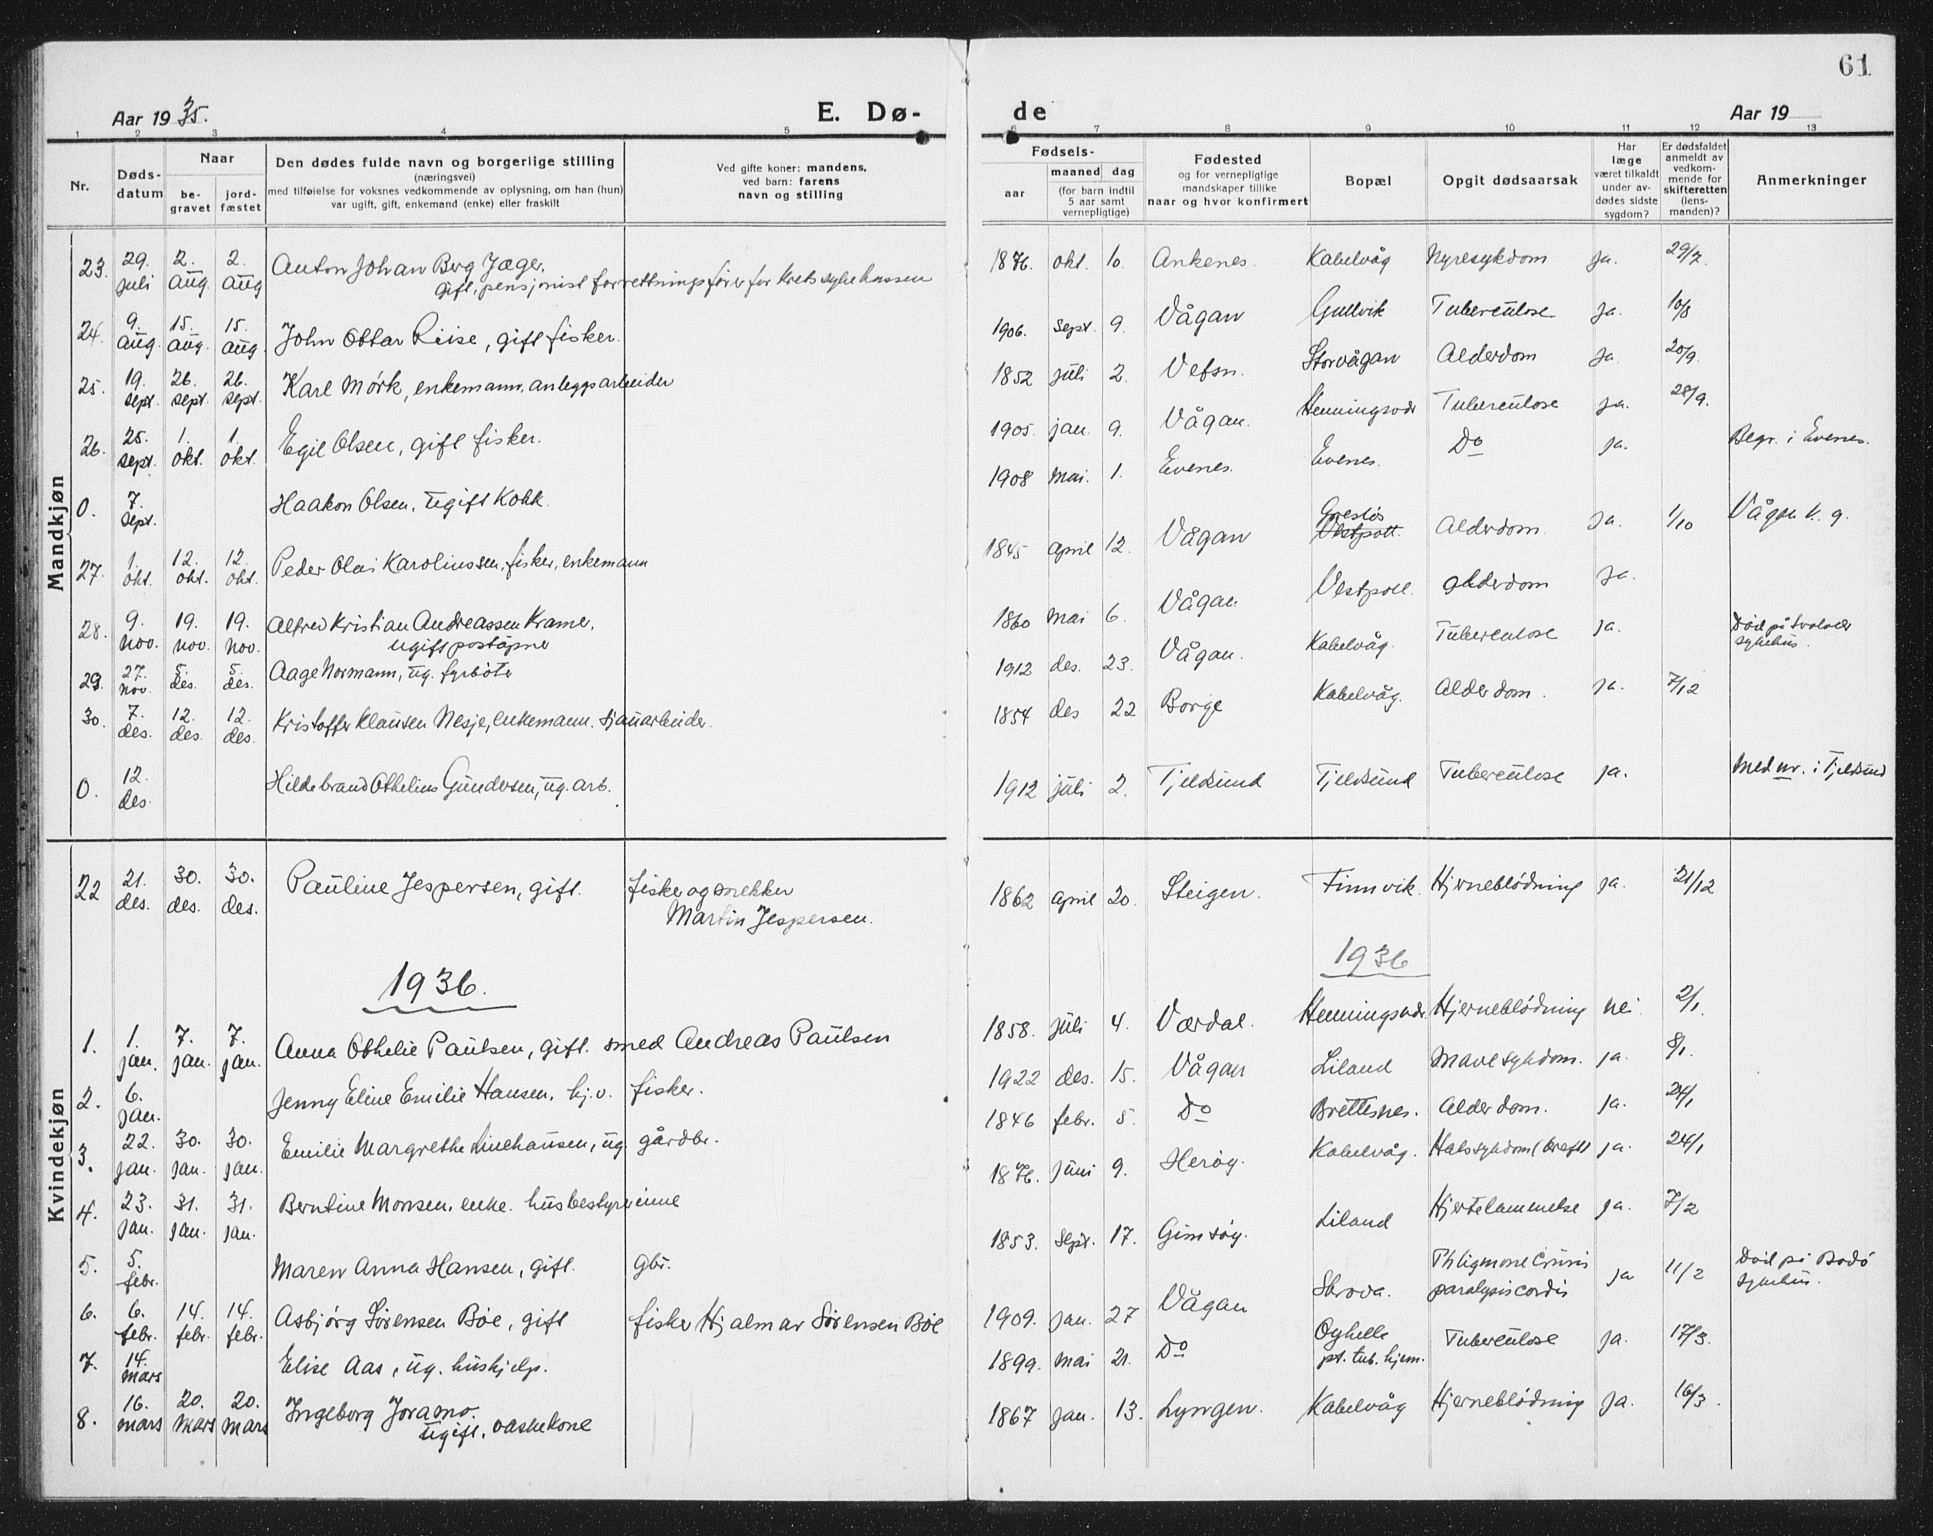 61
Aar 1935.
E. Dø-
de
Aar 19
1 2 3 4 5 6 7 8 9 10 11 12 13
Nr.
Døds-
datum
Naar
be-
gravet
jord-
fæstet
Den dødes fulde navn og borgerlige stilling
(næringsvei)
med tilføielse for voksnes vedkommende av oplysning, om han (hun)
var ugift, gift, enkemand (enke) eller fraskilt
Ved gifte koner: mandens,
ved barn: farens
navn og stilling
Fødsels-
aar
maaned dag
(for barn indtil
5 aar samt
vernepligtige)
Fødested
og for vernepligtige
mandskaper tillike
naar og hvor konfirmert
Bopæl
Opgit dødsaarsak
Har
læge
været tilkaldt
under av-
dødes sidste
sygdom?
Er dødsfaldet
anmeldt av
vedkom-
mende for
skifteretten
(lens-
manden)?
Anmerkninger
Mandkjøn
23. 29. juli 2. aug. 2. aug Anton Johan Berg Jæger, 1876. okt. 10. Ankenes. Kabelvåg Nyresykdom ja. 29/7.
gift, pensjonist forretningsfører for kretssykekassen
24. 9. aug. 15. aug. 15. aug. John Ottar Riise, gift fisker. 1906. sept. 9. Vågan Gullvik Tuberculose ja. 10/8
25. 19. sept. 26. sept. 26. sept. Karl Mørk, enkemann, anleggsarbeider 1852 juli 2. Vefsn. Storvågan Alderdom ja. 20/9.
26. 25. sept. 1. okt. 1. okt. Egil Olsen, gift fisker. 1905. jan. 9. Vågan. Henningsvær Tuberculose ja. 28/9.
0. 7. sept. Haakon Olsen, ugift kokk. 1908 mai. 1. Evenes. Evenes. Do ja. Begr. i Evenes.
27. 1. okt. 12. okt. 12. okt. Peder Olai Karolinssen, fisker, enkemann 1845 april 12. Vågan Vestpoll. Alderdom. ja. 1/10 Vågan k. g.
28. 9. nov. 19. nov. 19. nov. Alfred Kristian Andreassen Kramer, 1860 mai 6. Vågan Vestpoll. alderdom ja.
ugift poståpner
29. 27. nov. 5. des. 5. des. Aage Normann, ug. fyrbøter 1912 des. 23. Vågan. Kabelvåg. Tuberculose ja. Død på Svolvær
sykehus.
30. 7. des. 12. des. 12. des. Kristoffer Klausen Nesje, enkemann. sjauarbeider. 1854 des 22 Borge Kabelvåg. Alderdom. ja. 7/12
0. 12. des. Hildebrand Othelius Gundersen, ug. arb. 1912 juli 2. Tjeldsund Tjeldsund Tuberculose ja. Med nr. i Tjeldsund
Kvindekjøn
22 21. des. 30. des. 30. des. Pauline Jespersen, gift. fisker og snekker 1862 april 20. Steigen. Finnvik. Hjerneblødning ja. 21/12
Martin Jespersen.
1936. 1936
1. 1. jan. 7. jan. 7. jan. Anna Othelie Paulsen, gift. smed Andreas Paulsen 1858. juli 4. Værdal. Henningsvær. Hjerneblødning nei 2/1.
2. 6. jan. Jenny Eline Emilie Hansen, hj.v. fisker. 1922 des. 15. Vågan Liland Mavesykdom. ja. 8/1.
3. 22. jan. 30. jan. 30. jan. Emilie Margrethe Linehausen, ug. gårdbr. 1846 febr. 5. Do Brettesnes. Alderdom. ja. 24/1
4. 23. jan. 31. jan. 31. jan. Berntine Monsen, enke. husbestyrerinne 1876. juni 9. Herøy. Kabelvåg. Halssykdom (kreft) ja. 24/1
5. 5. febr. Maren Anna Hansen, gift. gbr. 1853. sept. 17. Gimsøy. Liland Hjertelammelse ja. 7/2
6. 6. febr. 14. febr. 14. febr. Asbjørg Sørensen Bøe, gift fisker Hjalmar Sørensen Bøe 1909. jan. 27 Vågan Skrova. Phligmone Cruris ja 11/2 Død på Bodø
paralysis cordis sykehus.
7. 14. mars Elise Aas, ug. hushjelp. 1899. mai 21. Do Oyhelle Tuberculose ja. 17/3.
pt. tub. hjem.
8. 16. mars 20. mars 20. mars Ingeborg Joramo. 1867 jan. 13. Lyngen. Kabelvåg Hjerneblødning ja. 16/3.
ugift, vaskekone